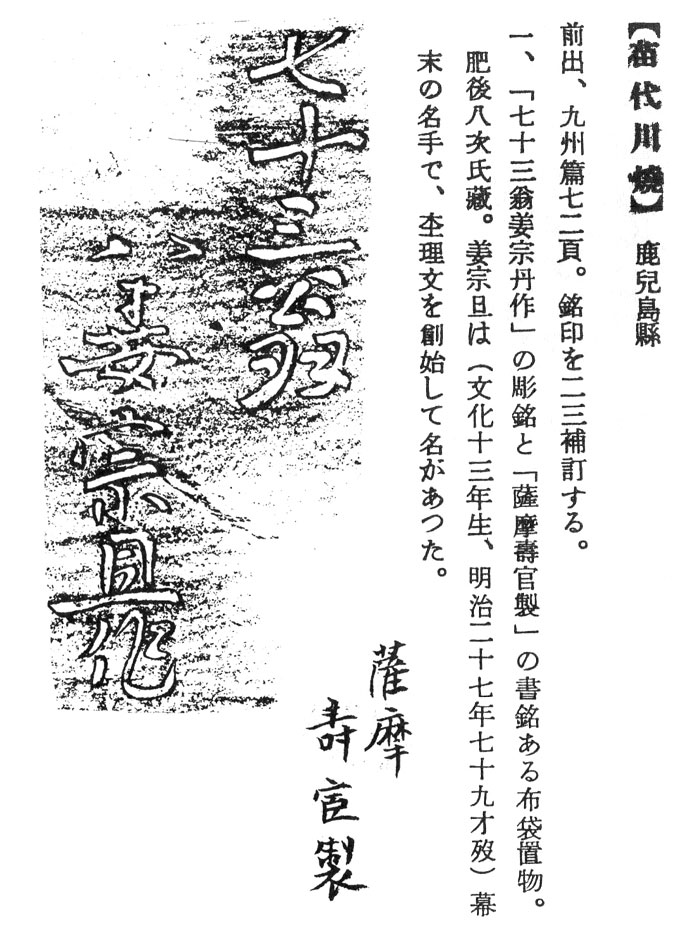 【苗代川燒】 鹿兒島縣
前出、九州篇七二頁。銘印を二三補訂する。
一、「七十三翁姜宗丹作」の彫銘と「薩摩壽官製」の書銘ある布袋置物。
肥後八次氏藏。姜宗旦は(文化十三年生、明治二十七年七十九才歿)幕
末の名手で、杢理文を創始して名があつた。
薩摩
寿官製
七十三翁
姜宗旦作